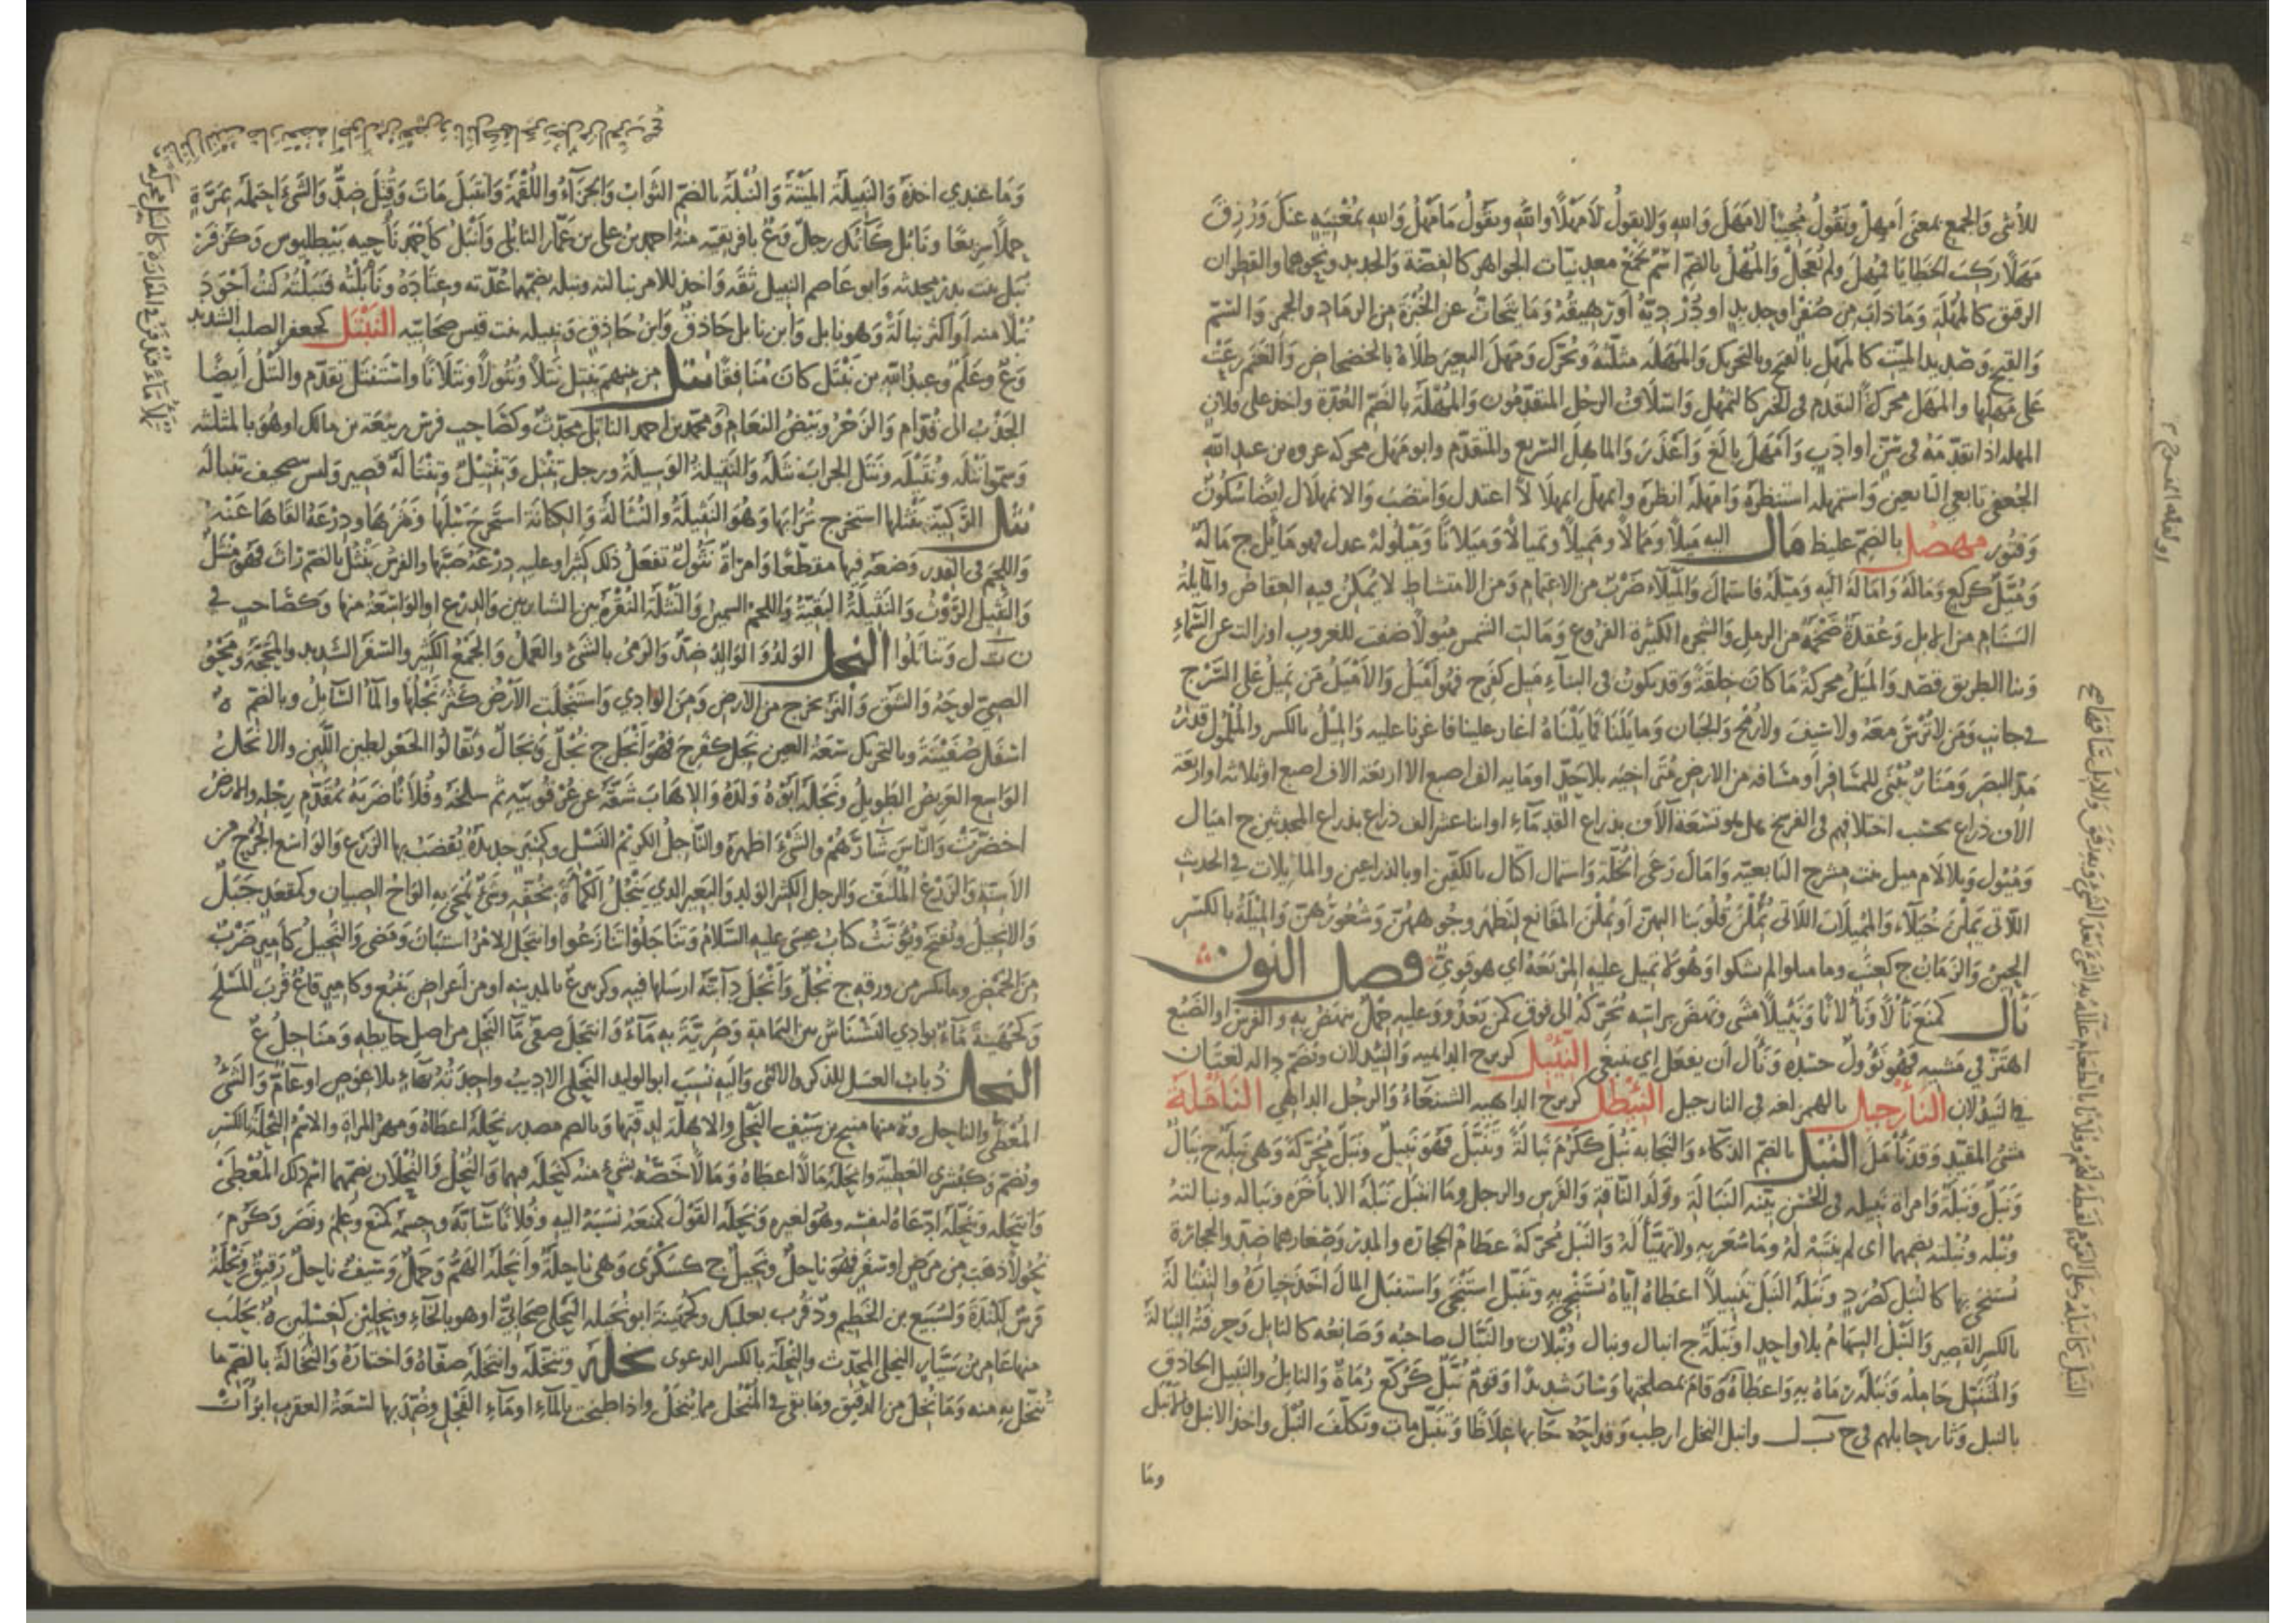 للأنثى والجمع بمعنى أمهل ويقول مجيبا لا مهل والله ولا يقول لا مهلا والله ويقول ما مهل والله بمغنية عنك ورزق
مهلا ركب الخطايا فمهل ولم يعجل والمهل بالضم اسم يجمع معدنيات الجواهر كالفضة والحديد ونحوهما والقطران
الرقيق كالمهلة وما ذاب من صفر أو حديد أو دردية أو رقيقه وما يتحات عن الخبزة من الرماد والجمر والسم
والقيح وصديد الميت كالمهل بالفتح وبالتحريك والمهلة مثلثة ويحرك ومهل البعير طلاه بالخضخاض والغنم رعت
على مهلها والمهل محركة التقدم في الخير كالتمهل وأسلاف الرجل المتقدمون والمهلة بالضم العدة وأخذ على فلان
المهلة إذا تقدمه في سن أو أدب وأمهل بالغ وأعذر والماهل السريع والمتقدم وأبو مهل محركة عروة بن عبد الله
الجعفي تابعي التابعين واستمهله استنظره وأمهله أنظره واتمهل اتمهلالا اعتدل وانتصب والاتمهلال أيضا سكون
وفتور مهصل بالضم غليظ مال إليه ميلا وممالا ومميلا وتميالا وميلانا وميلولة عدل فهو مائل ج مالة
وميل كركع وماله وأماله إليه وميله فاستمال والميلاء ضرب من الاعتمام ومن الامتشاط لا يمكن فيه العقاص والمائلة
السنام من الإبل وعقدة ضخمة من الرمل والشجرة الكثيرة الفروع ومالت الشمس ميولا ضفت للغروب أو زالت عن السماء
وبنا الطريق قصد والميل محركة ما كان خلقة وقد يكون في البناء ميل كفرح فهو أميل والأميل من يميل على السرج
في جانب ومن لا ترس معه ولا سيف ولا رمح والجبان ومايلنا فمايلناه أغار علينا فأغرنا عليه والميل بالكسر والملمول قدر
مد البصر ومنار يبنى للمسافر أو مسافة من الأرض متراخية بلا حد أو مائة ألف إصبع إلا أربعة آلاف إصبع أو ثلاثة أو أربعة
آلاف ذراع بحسب اختلافهم في الفرسخ هل هو تسعة آلاف بذراع القدماء أو اثنا عشر ألف ذراع بذراع المحدثين ج أميال
وميول وبلا لام ميل بنت مشرح التابعية وأمال رعى الخلة واستمال اكتال بالكفين أو بالذراعين والمائلات في الحديث
اللاتي يملن خيلاء والمميلات اللاتي يملن قلوبنا إليهن أو يملن المقانع لتظهر وجوههن وشعورهن والميلة بالكسر
الحين والزمان ج كعنب وما ميلوا لم يشكوا وهو لا تميل عليه المربعة أي هو قوي فصل النون
نأل كمنع نألا ونألانا ونئيلا مشى ونهض برأسه يحركه إلى فوق كمن يعدو وعليه حمل ينهض به والفرس أو الضبع
اهتز في مشيه فهو نؤول حسده ونأل أن يفعل أي ينبغي النئبل كزبرج الداهية والنيدلان وتضم داله لغتان
في النيدلان النارجيل بالهمز لغة في النارجيل النئطل كزبرج الداهية الشنعاء والرجل الداهي النأملة
مشي المقيد وقد نأمل النبل بالضم الذكاء والنجابة نبل ككرم نبالة وتنبل فهو نبيل ونبل محركة وهي نبلة ج نبال
ونبل ونبلة وامرأة نبيلة في الحسن بينة النبالة وولد الناقة والفرس والرجل وما انتبل نبله إلا بأخرة ونباله ونبالته
ونبله ونبلته بضمهما أي لم ينتبه له وما شعر به ولا تهيأ له والنبل محركة عظام الحجارة والمدر وصغارهما ضد والحجارة
يستنجى بها كالنبل كصرد ونبله النبل تنبيلا أعطاه إياه يستنجي به وتنبل استنجى واستنبل المال أخذ خياره والتنبالة
بالكسر القصير والنبل السهام بلا واحد أو نبلة ج أنبال ونبال ونبلان والنبال صاحبه وصانعه كالنابل وحرفته النبالة
والمتنبل حامله ونبله رماه به وأعطاه وقام بمصلحتها وسار شديدا وقوم نبل كركع رماة والنابل والنبيل الحاذق
بالنبل وثار حابلهم في ح ب ل وأنبل النخل أرطب وقداحه جاء بها غلاظا وتنبل مات وتكلف النبل وأخذ الأنبل فالأنبل
وما
وما عندي أخذه والنبيلة الميتة والنبلة بالضم الثواب والجزاء واللقمة وانتبل مات وقتل ضد والشيء احتمله بمرة
حملا سريعا ونابل كآنك رجل وع بإفريقية منه أحمد بن علي بن عمار النابلي وأنبل كأحمد ناحية ببطليوس وكزفر
نبل بنت بدر محدثة وأبو عاصم النبيل ثقة وأخذ للأمر نبالته ونبله بضمهما عدته وعتاده ونابلته فنبلته كنت أجود
نبلا منه أو أكثر نبالة وهو نابل وابن نابل حاذق وابن حاذق ونبيلة بنت قيس صحابية النبتل كجعفر الصلب الشديد
وع وعلم وعبد الله بن نبتل كان منافقا نتل من بينهم ينتل نتلا ونتولا ونتلانا واستنتل تقدم والنتل أيضا
الجذب إلى قدام والزجر وبيض النعام ومحمد بن أحمد الناتل محدث وكصاحب فرس ربيعة بن مالك أو هو بالمثلثة
وسموا نتلة ونتيلة ونتل الجراب نثله والنتيلة الوسيلة ورجل تنتل وتنتيل وتنتالة قصير وليس تصحيف تنبالة
نثل الركية ينثلها استخرج ترابها وهو النثيلة والنثالة والكنانة استخرج نبلها ونثرها ودرعه ألقاها عنه
واللحم في القدر وضعه فيها مقطعا وامرأة نثول تفعل ذلك كثيرا وعليه درعه صبها والفرس ينثل بالضم راث فهو منثل
والنثيل الروث والنثيلة البقية واللحم السمين والنثلة النقرة بين الشاربين والدرع أو الواسعة منها وكصاحب في
ن ت ل وتناثلوا النجل الولد والوالد ضد والرمي بالشيء والعمل والجمع الكثير والسير الشديد والمحجة ومحو
الصبي لوحه والشق والنز يخرج من الأرض ومن الوادي واستنجلت الأرض كثر نجلها والماء السائل وبالضم ة
أسفل صفينة وبالتحريك سعة العين نجل كفرح فهو أنجل ج نجل ونجال ونقالوا الجعو لطين اللبن والأنجل
الواسع العريض الطويل ونجله أبوه ولده والإهاب شقه عن عرقوبيه ثم سلخه وفلانا ضربه بمقدم رجله والأرض
اخضرت والناس شارهم والشيء أظهره والناجل الكريم النسل وكمنبر حديدة يقضب بها الزرع والواسع الجرح من
الأسنة والزرع الملتف والرجل الكثير الولد والبعير الذي ينجل الكمأة بخفه وشيء يمحى به ألواح الصبيان وكمقعد جبل
والإنجيل ويفتح ويؤنث كتاب عيسى عليه السلام وتناجلوا تنازعوا وانتجل الأمر استبان ومضى والنجيل كأمير ضرب
من الحمض وما تكسر من ورقه ج نجل وأنجل دابته أرسلها فيه وكزبير ع بالمدينة أو من أعراض ينبع وكأمير قاع قرب المسلح
وكجهينة ماء بوادي النشناش من اليمامة وضرية به ماء وانتجل صفى ماء النجل من أصل حائطه ومناجل ع
النحل ذباب العسل للذكر والأنثى وإليه نسب أبو الوليد النحلي الأديب واحدته بهاء بلا عوض أو عام والشيء
المعطى والناحل وة منها منيح بن سيف النحلي والأهلة لدقتها وبالضم مصدر نحله أعطاه ومهر المرأة والاسم النحلة بالكسر
ويضم وكبشرى العطية وأنحله مالا أعطاه ومالا خصه بشيء منه كنحله فيهما والنحل والنحلان بضمهما اسم ذلك المعطى
وانتحله وتنحله ادعاه لنفسه وهو لغيره ونحله القول كمنعه نسبه إليه وفلانا سابه وجسمه كمنع وعلم ونصر وكرم
نحولا ذهب من مرض أو سفر فهو ناحل ونحيل ج كسكرى وهي ناحلة وأنحله الهم وجمل وسيف ناحل رقيق ونحلة
فرس لكندة ولسبيع بن الخطيم وة قرب بعلبك وكجهينة أبو نحيلة البجلي صحابي أو هو بالخاء ونحلين كغسلين ة بحلب
منها عامر بن سيار النحلي المحدث والنحلة بالكسر الدعوى نخله وتنخله وانتخله صفاه واختاره والنخالة بالضم ما
ينخل به منه وما نخل من الدقيق وما بقي في المنخل مما ينخل وإذا طبخت بالماء أو ماء الفجل وضمد بها لسعة العقرب أبرأت